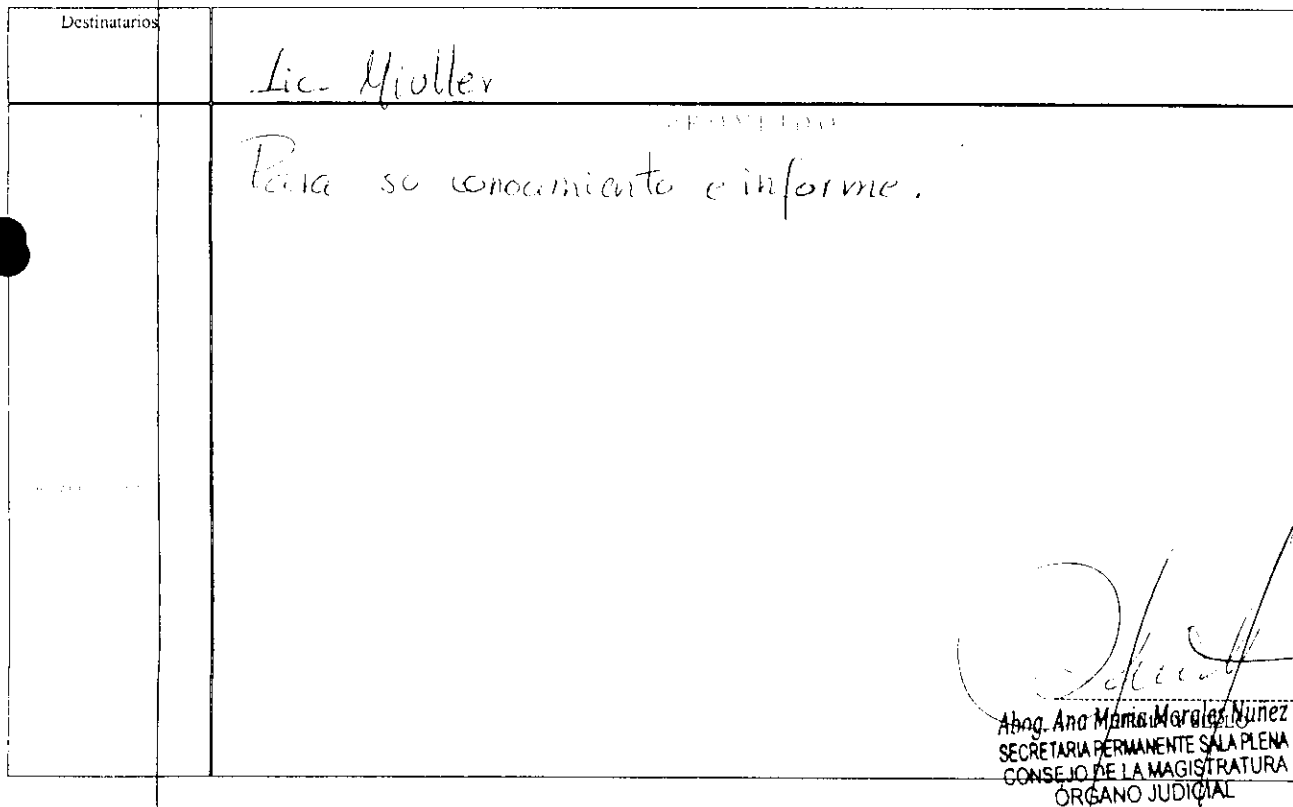 Destinatarios
Lic. Miuller
PROVEIDO
Para su conocimiento e informe.
Abog. Ana Maria Morales Nuñez
SECRETARIA PERMANENTE SALA PLENA
CONSEJO DE LA MAGISTRATURA
ÓRGANO JUDICIAL